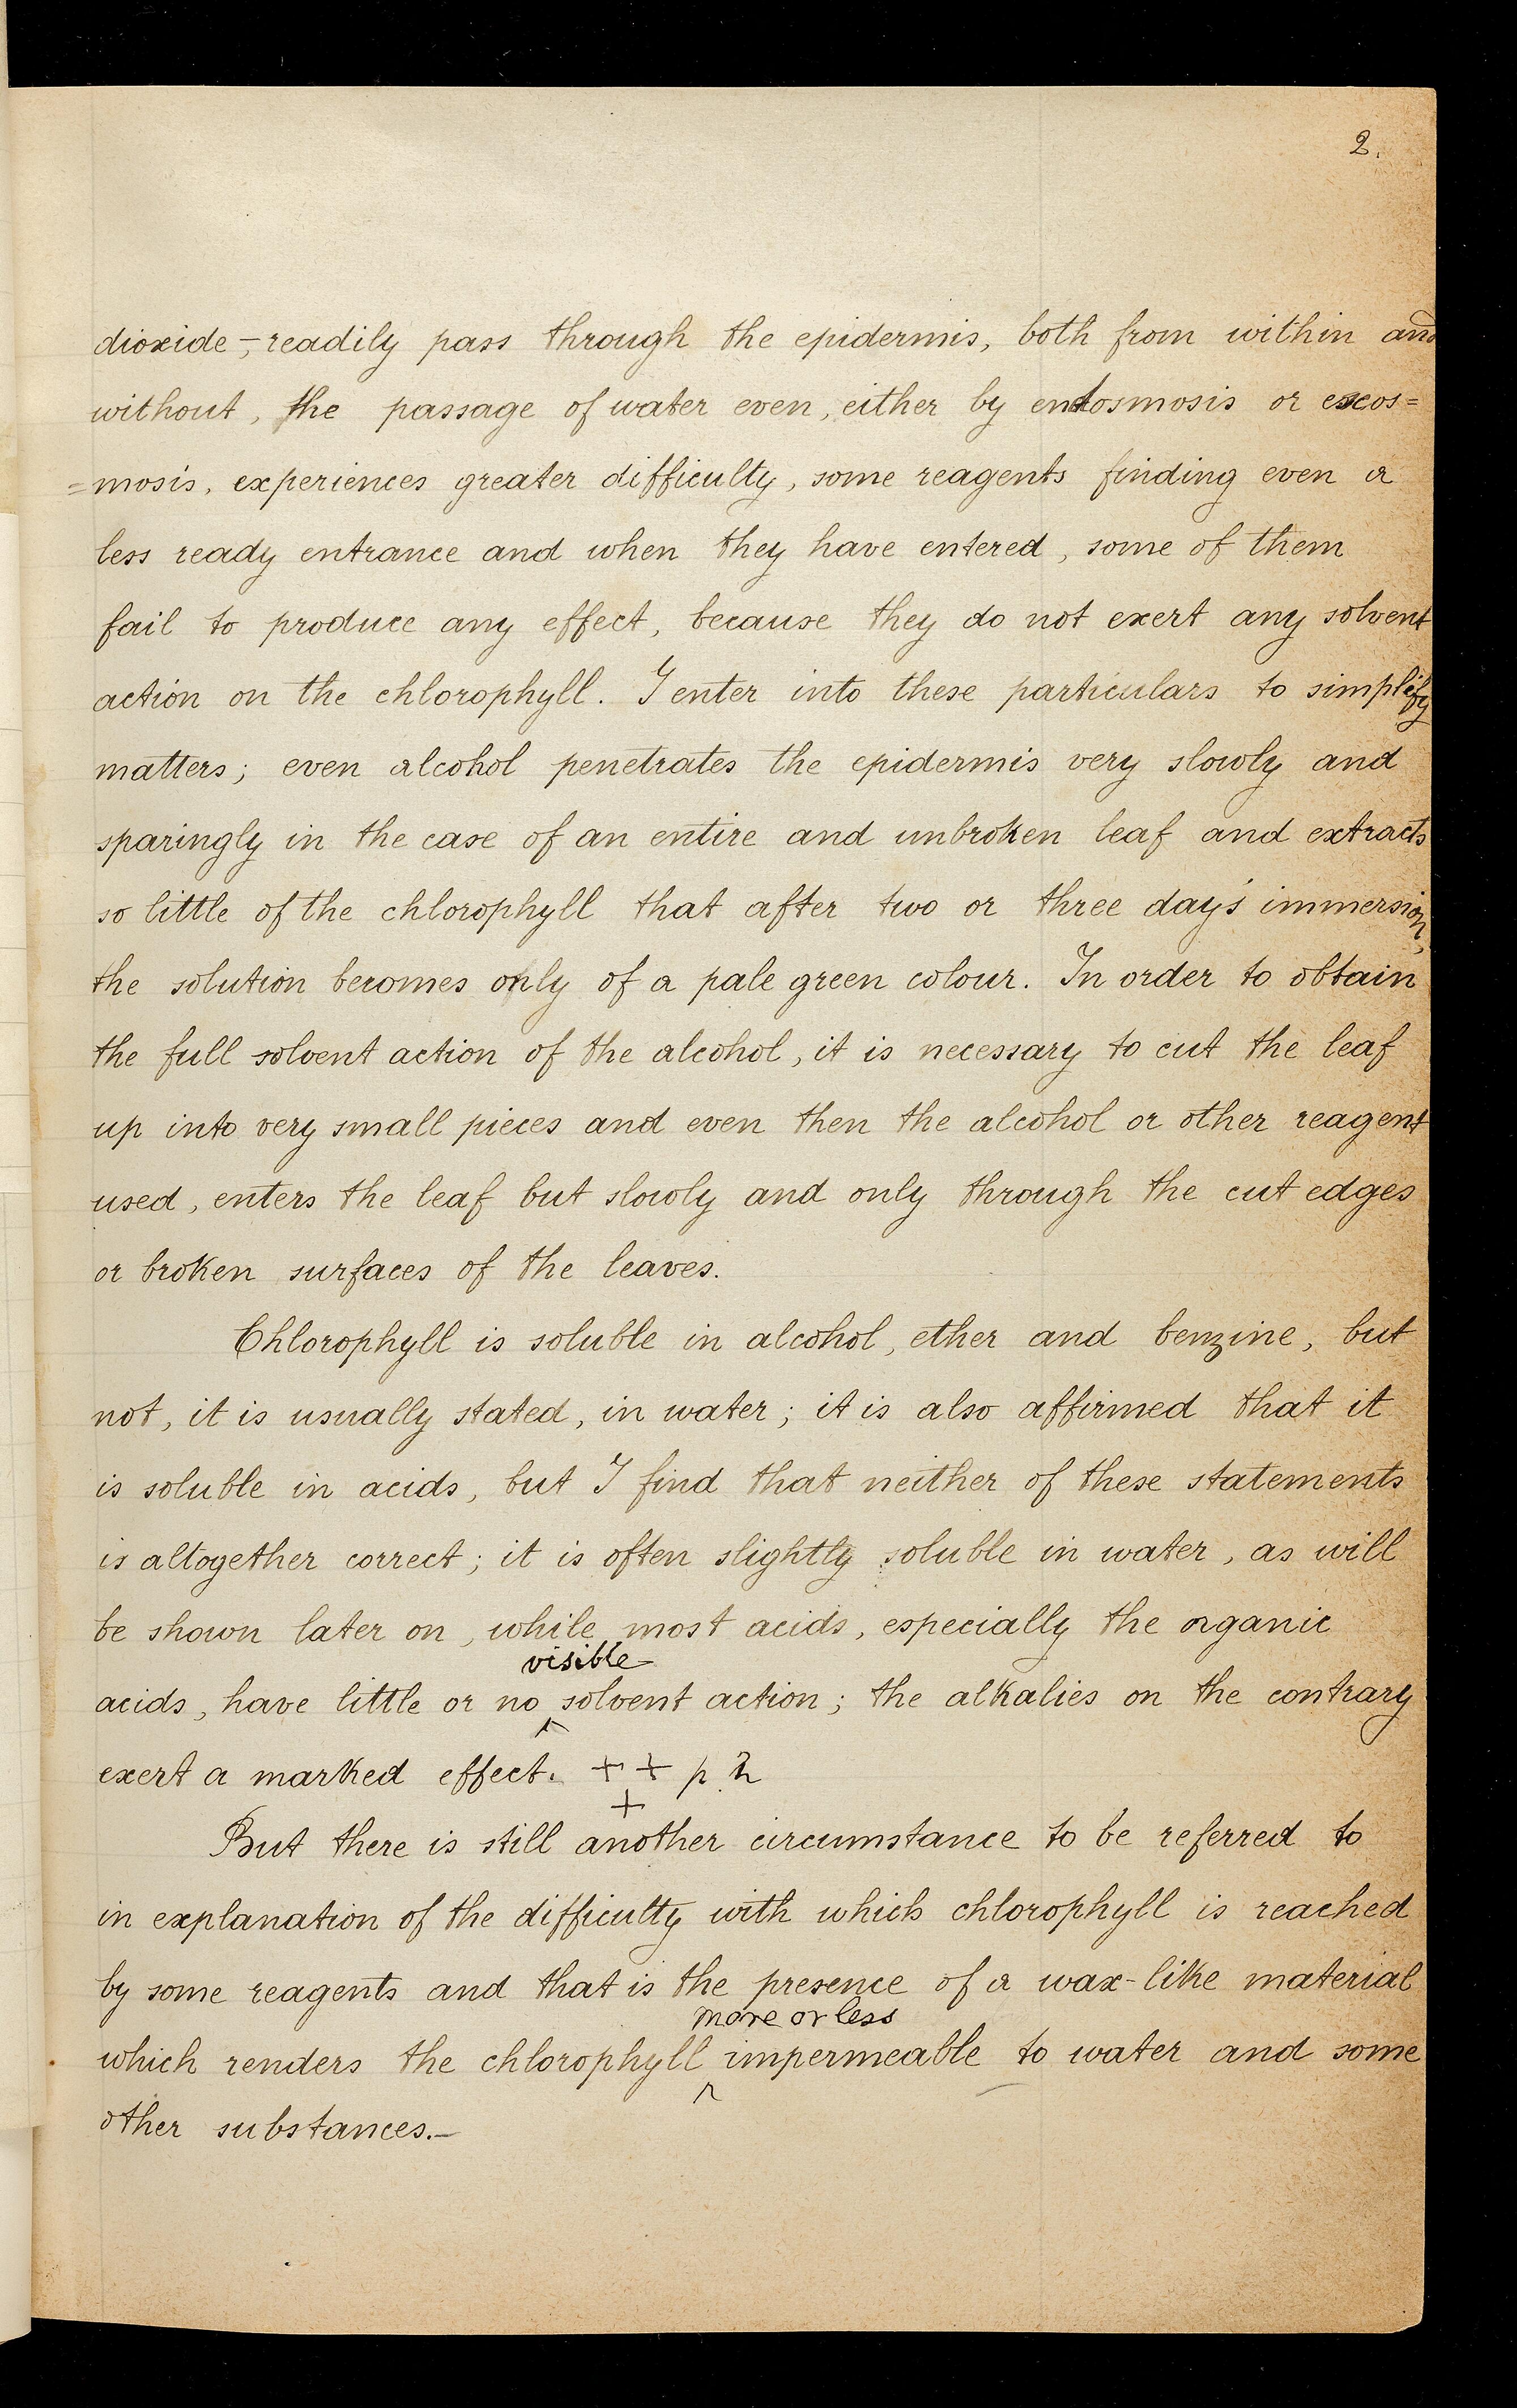 2.
dioxide -, readily pass through the epidermis, both from within and
without, the passage of water even, either by endosmosis or exos=
=mosis, experiences greater difficulty, some reagents finding even a
less ready entrance and when they have entered, some of them
fail to produce any effect, because they do not exert any solvent
action on the chlorophyll. I enter into these particulars to simplify
matters; even alcohol penetrates the epidermis very slowly and
sparingly in the case of an entire and unbroken leaf and extracts
so little of the chlorophyll that after two or three day's immersion,
the solution becomes only of a pale green colour. In order to obtain
the full solvent action of the alcohol, it is necessary to cut the leaf
up into very small pieces and even then the alcohol or other reagent
used, enters the leaf but slowly and only through the cut edges
or broken surfaces of the leaves.
Chlorophyll is soluble in alcohol, ether and benzine, but
not, it is usually stated, in water; it is also affirmed that it
is soluble in acids, but I find that neither of these statements
is altogether correct; it is often slightly soluble in water, as will
be shown later on, while most acids, especially the organic
visible
acids, have little or no ^ solvent action; the alkalies on the contrary
exert a marked effect. + + p 2
+
But there is still another circumstance to be referred to
in explanation of the difficulty with which chlorophyll is reached
by some reagents and that is the presence of a wax-like material
more or less
which renders the chlorophyll ^ impermeable to water and some
other substances.—